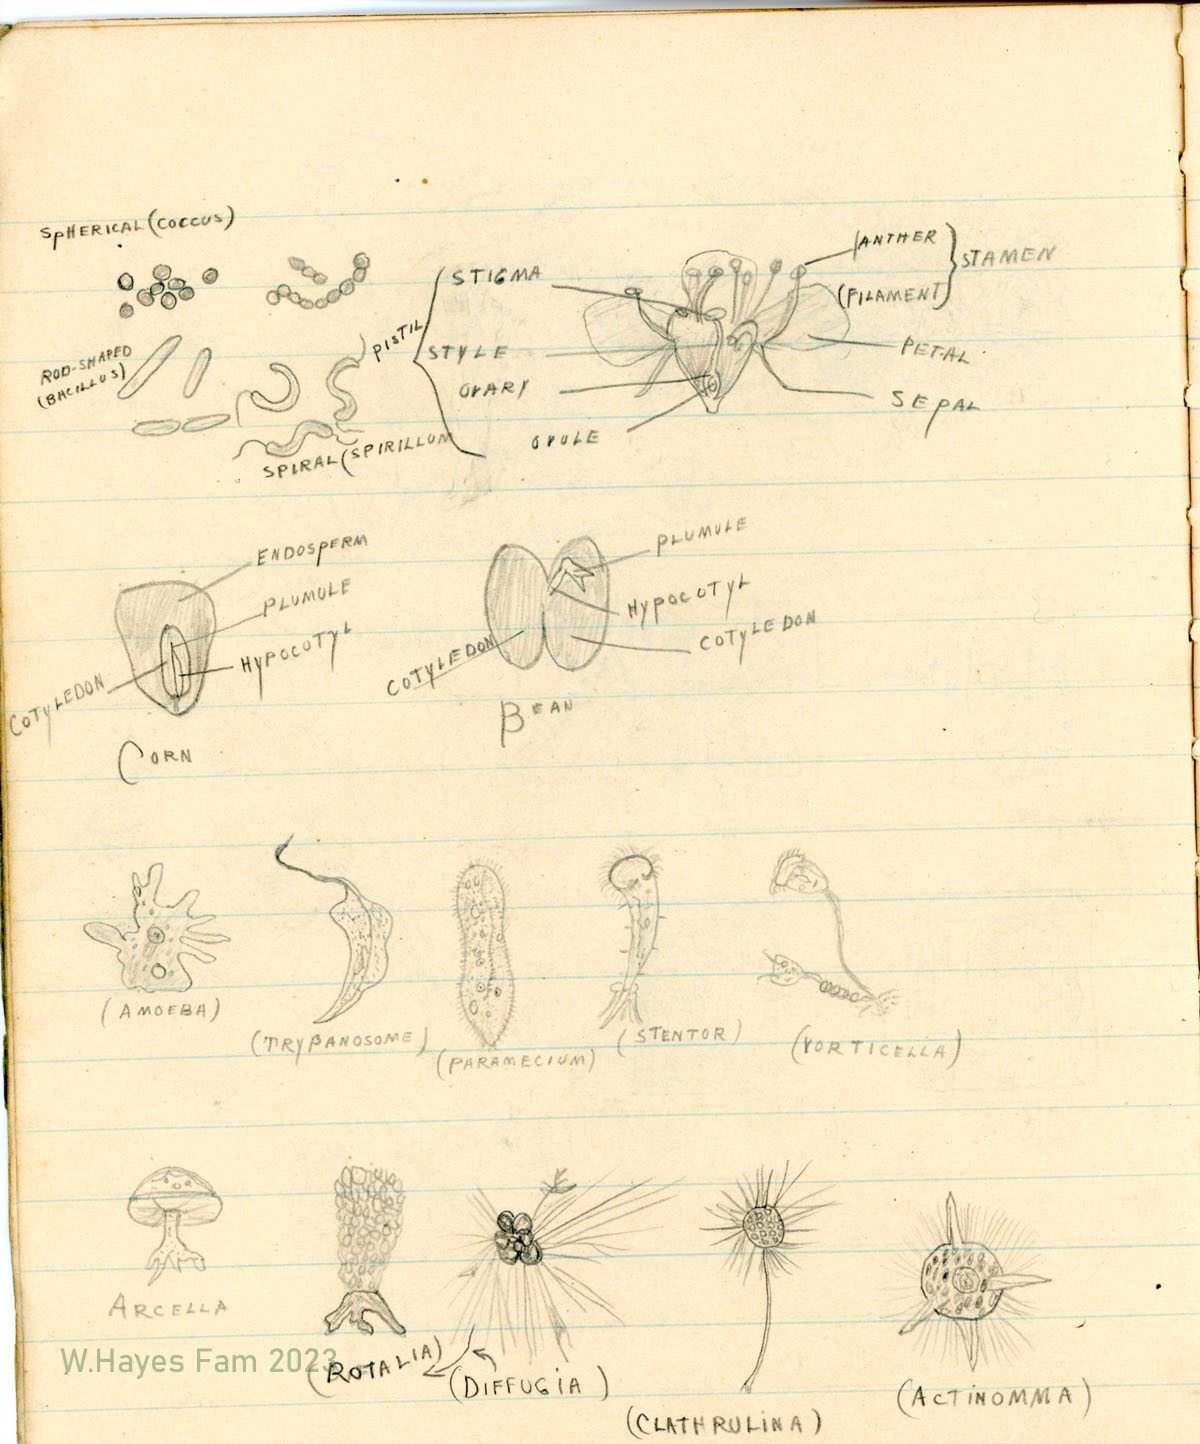 SPHERICAL (COCCUS)
ROD-SHAPED
(BACILLUS)
SPIRAL (SPIRILLUM
PISTIL
STIGMA
STYLE
OVARY
OVULE
ANTHER
(FILAMENT)
STAMEN
PETAL
SEPAL
ENDOSPERM
PLUMULE
HYPOCOTYL
COTYLEDON
CORN
PLUMULE
HYPOCOTYL
COTYLEDON
COTYLEDON
BEAN
(AMOEBA)
(TRYPANOSOME)
(PARAMECIUM)
(STENTOR)
(VORTICELLA)
ARCELLA
(ROTALIA)
(DIFFUGIA)
(CLATHRULINA)
(ACTINOMMA)
W.Hayes Fam 2023